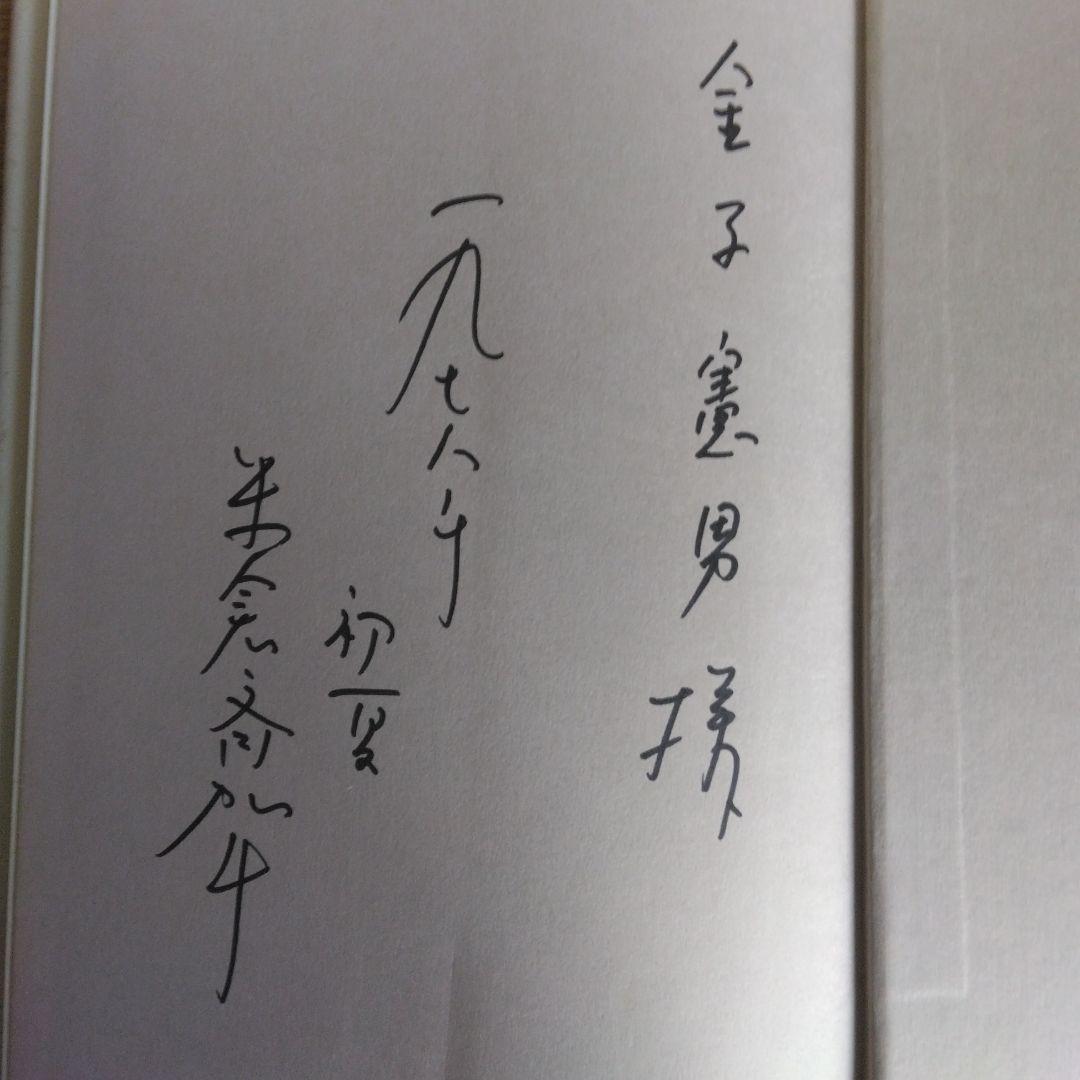 金子憲男様
一九七八年
初夏
米倉斉加年